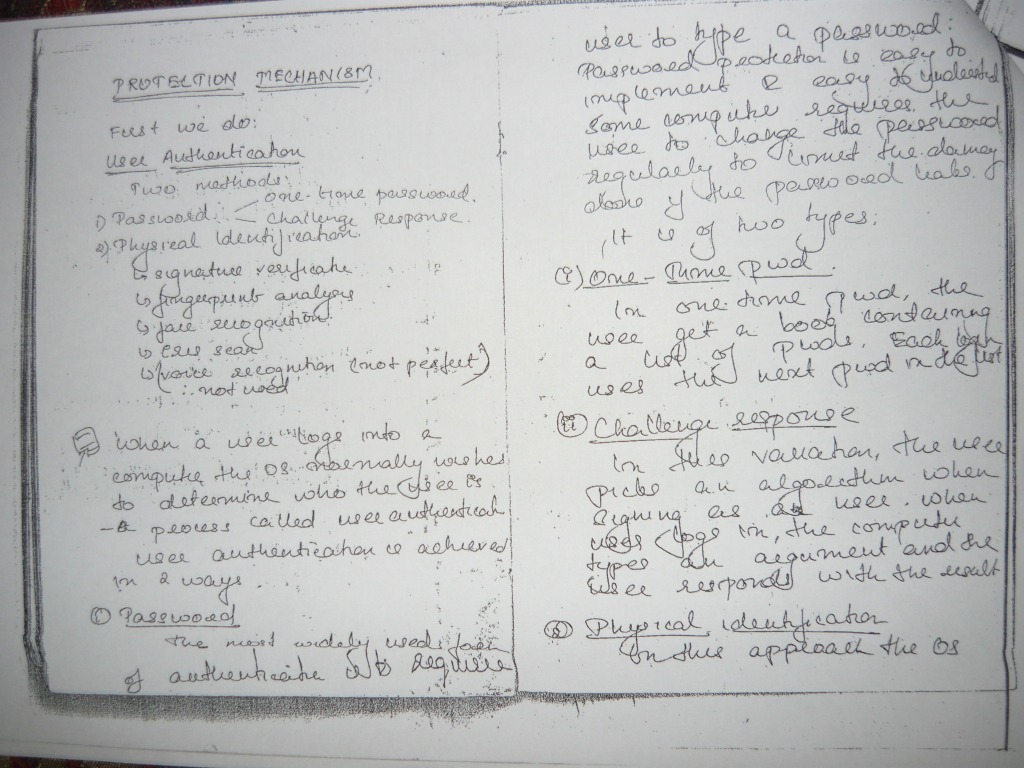 PROTECTION MECHANISM
First we do:
User Authentication
Two methods:
1) Password. one-time password.
Challenge Response.
2) Physical Identification.
↳ signature verificate
↳ fingerprint analysis
↳ face recognition
↳ scan
↳ voice recognition (not perfect)
∴ not used
When a user logs into a
compute the OS normally wishes
to determine who the user is
- a process called user authenticat
user authentication is achieved
in 2 ways.
(i) Password
The most widely used form
of authenticatn is to require
user to type a password:
Password protection is easy to
implement & easy to understd
Some compute requires the
user to change the password
regularly to limit the damag
done if the password leaks.
It is of two types:
(i) One-Time pwd.
In one-time pwd, the
user get a book containing
a list of pwds. Each login
uses the next pwd in the list
(ii) Challenge response
In this variation, the user
picks an algorithm when
signing as a user. when
user logs in, the compute
types an argument and the
user responds with the result
(2) Physical identification
In this approach the OS